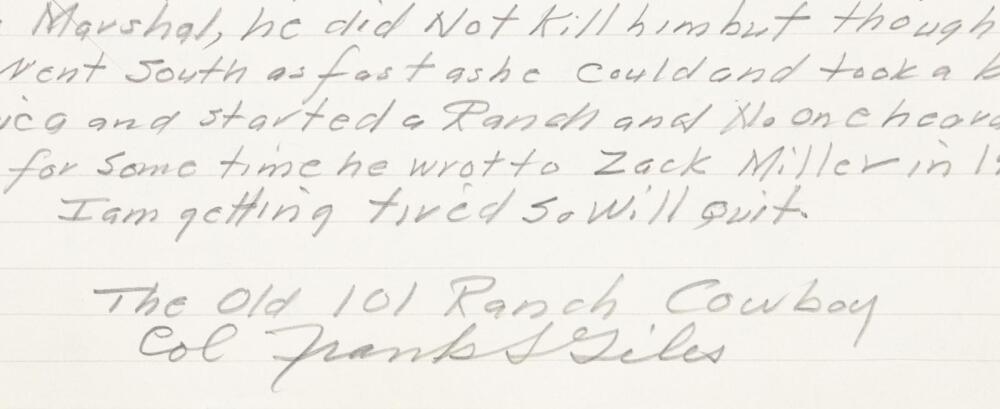 Marshal, he did Not Kill him but though
Went South as fast as he Could and took a b
ica and started a Ranch and No one heard
for some time he wrot to Zack Miller in 1
I am getting tired So will quit.
The Old 101 Ranch Cowboy
Col Frank S Giles